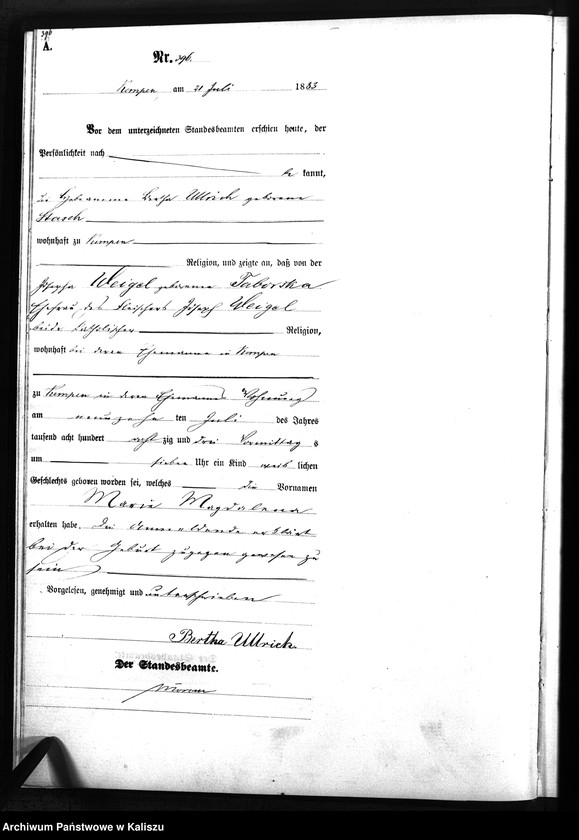 396
A.
Nr. 396.
Kempen am 21 Juli 1883
Vor dem unterzeichneten Standesbeamten erschien heute, der
Persönlichkeit nach
be kannt,
die Hebeamme Bertha Ullrich geborene
Stasch
wohnhaft zu Kempen
Religion, und zeigte an, daß von der
Josepha Weigel geborenen Taborska
Ehefrau des Fleischers Joseph Weigel
beide katholischer Religion,
wohnhaft bei deren Ehemanne in Kempen
zu Kempen in deren Ehemannes Wohnung
am neunzehn ten Juli des Jahres
tausend acht hundert acht zig und drei Vormittag s
um sieben Uhr ein Kind weib lichen
Geschlechts geboren worden sei, welches die Vornamen
Marie Magdalena
erhalten habe. Die Anmeldende erklärt
bei der Geburt zugegen gewesen zu
sein
Vorgelesen, genehmigt und unterschrieben
Bertha Ullrich.
Der Standesbeamte.
Archiwum Państwowe w Kaliszu